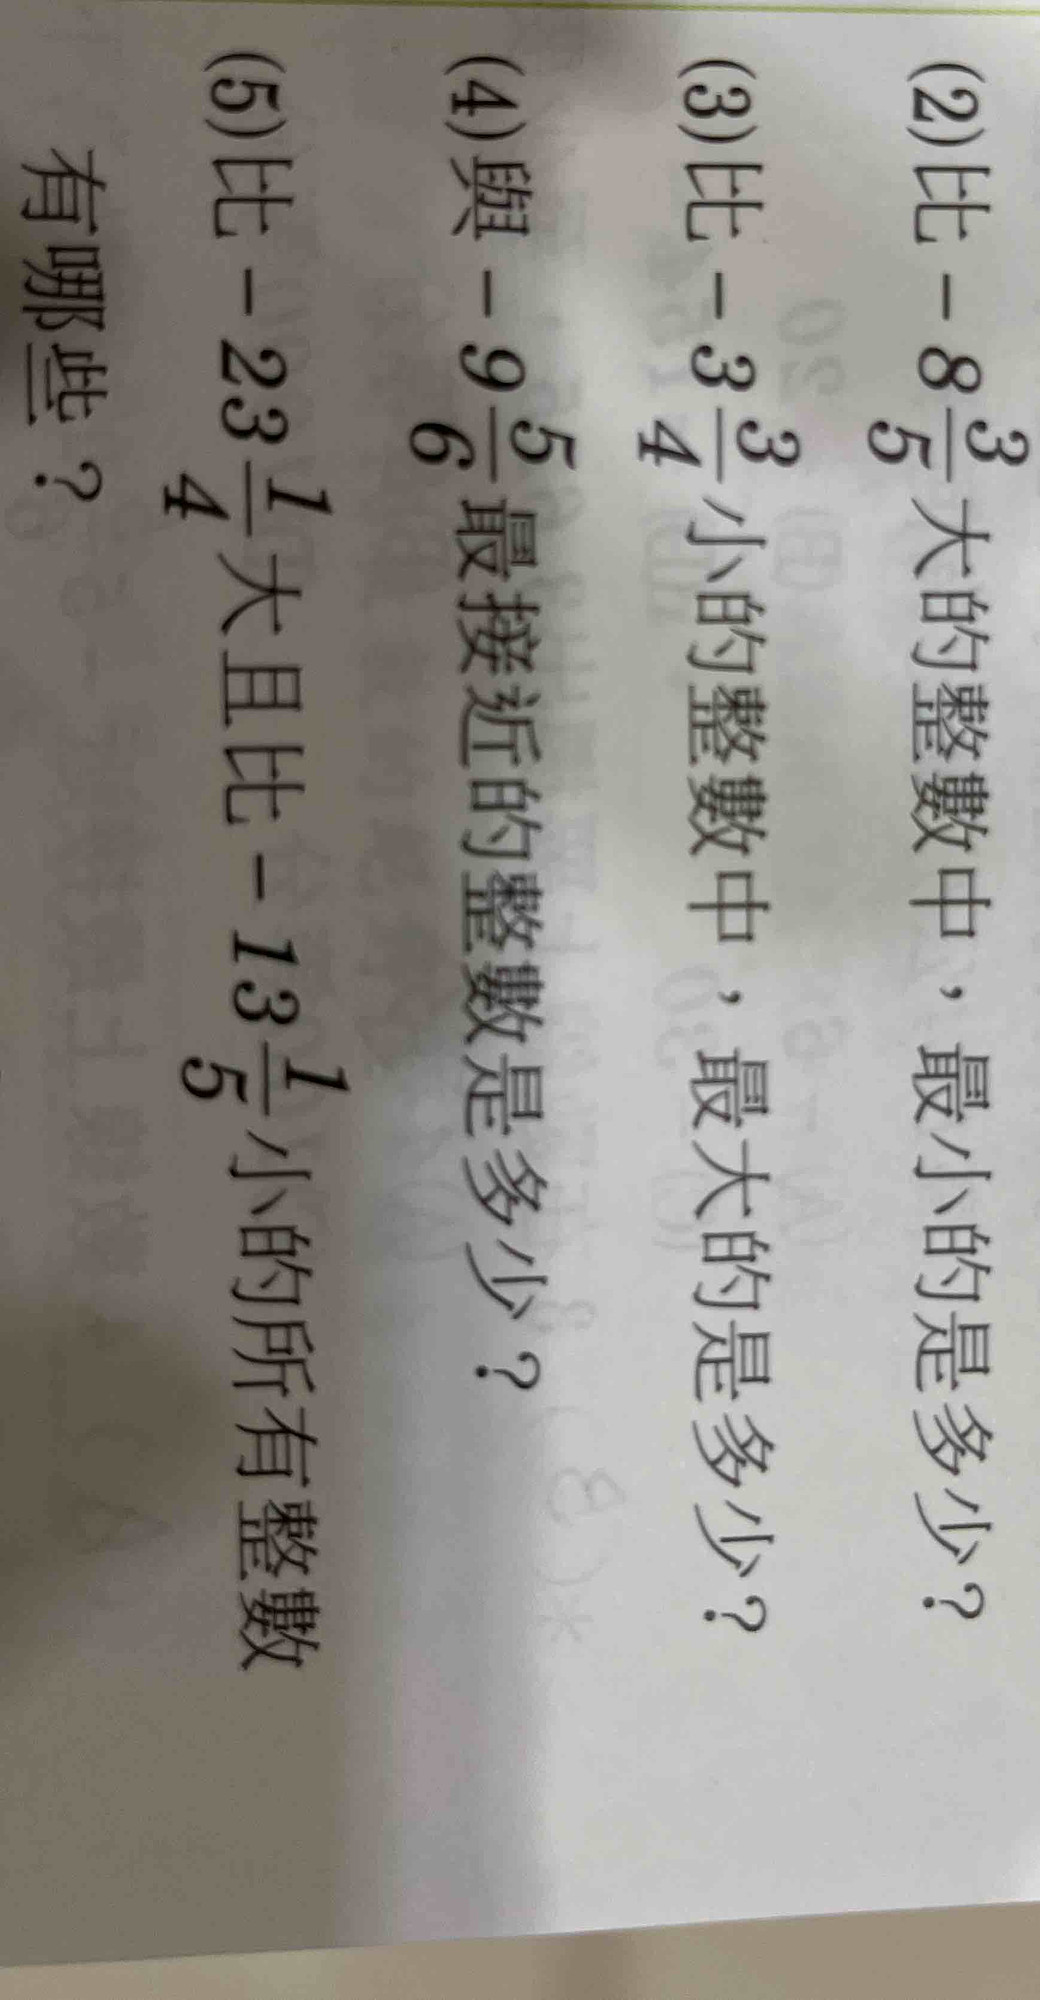 (2)比－8 3/5 大的整數中，最小的是多少？
(3)比－3 3/4 小的整數中，最大的是多少？
(4)與－9 5/6 最接近的整數是多少？
(5)比－23 1/4 大且比－13 1/5 小的所有整數
有哪些？